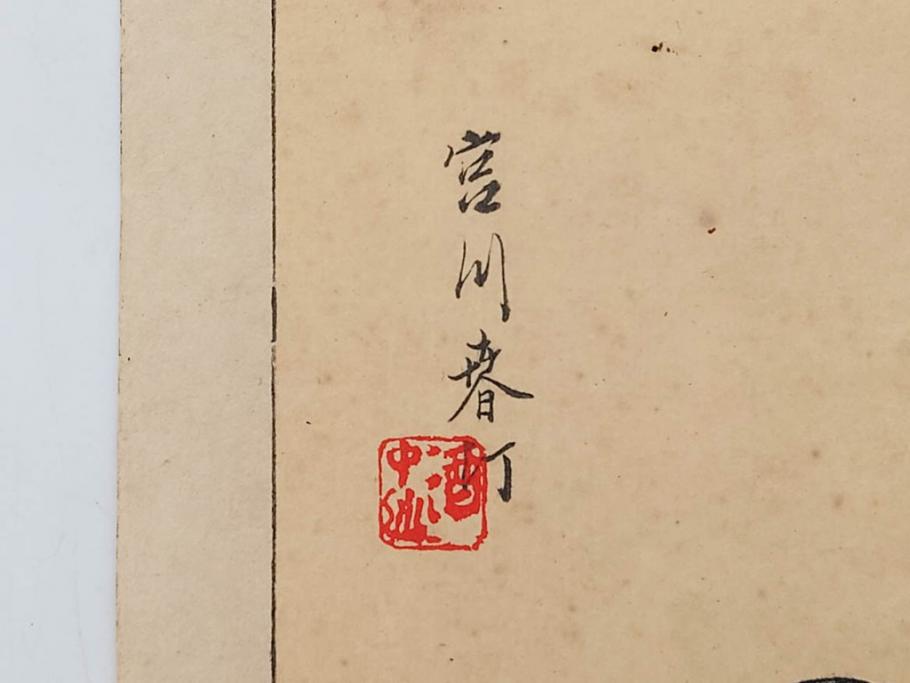 宮川春汀
酒中仙